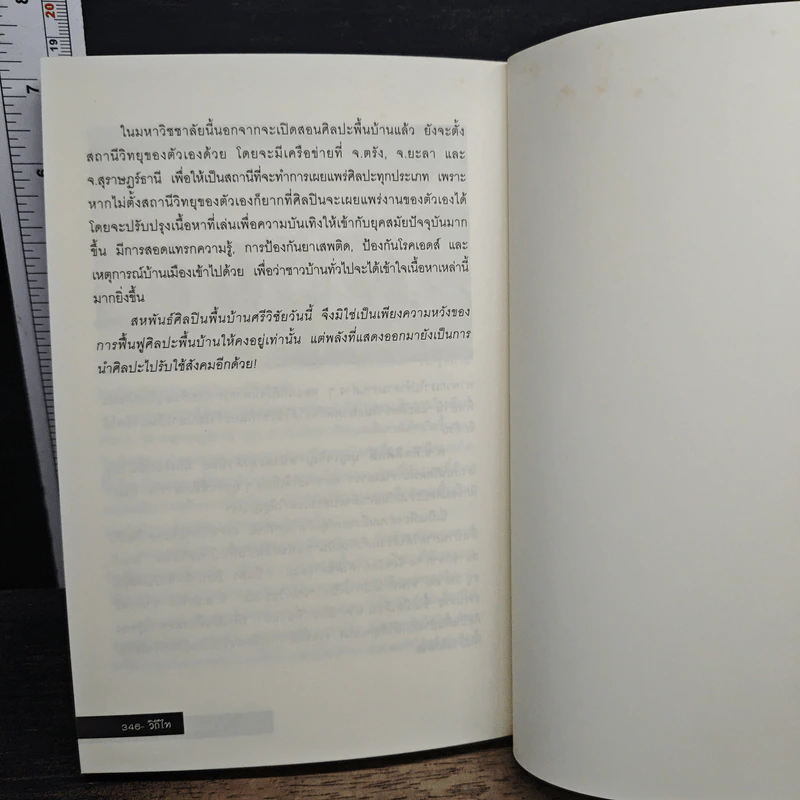 ในมหาวิชชาลัยนี้นอกจากจะเปิดสอนศิลปะพื้นบ้านแล้ว ยังจะตั้ง
สถานีวิทยุของตัวเองด้วย โดยจะมีเครือข่ายที่ จ.ตรัง, จ.ยะลา และ
จ.สุราษฎร์ธานี เพื่อให้เป็นสถานีที่จะทำการเผยแพร่ศิลปะทุกประเภท เพราะ
หากไม่ตั้งสถานีวิทยุของตัวเองก็ยากที่ศิลปินจะเผยแพร่งานของตัวเองได้
โดยจะปรับปรุงเนื้อหาที่เล่นเพื่อความบันเทิงให้เข้ากับยุคสมัยปัจจุบันมาก
ขึ้น มีการสอดแทรกความรู้, การป้องกันยาเสพติด, ป้องกันโรคเอดส์ และ
เหตุการณ์บ้านเมืองเข้าไปด้วย เพื่อว่าชาวบ้านทั่วไปจะได้เข้าใจเนื้อหาเหล่านี้
มากยิ่งขึ้น
สหพันธ์ศิลปินพื้นบ้านศรีวิชัยวันนี้ จึงมิใช่เป็นเพียงความหวังของ
การฟื้นฟูศิลปะพื้นบ้านให้คงอยู่เท่านั้น แต่พลังที่แสดงออกมายังเป็นการ
นำศิลปะไปรับใช้สังคมอีกด้วย!
346- วิถีไท
8
7
6
20
19